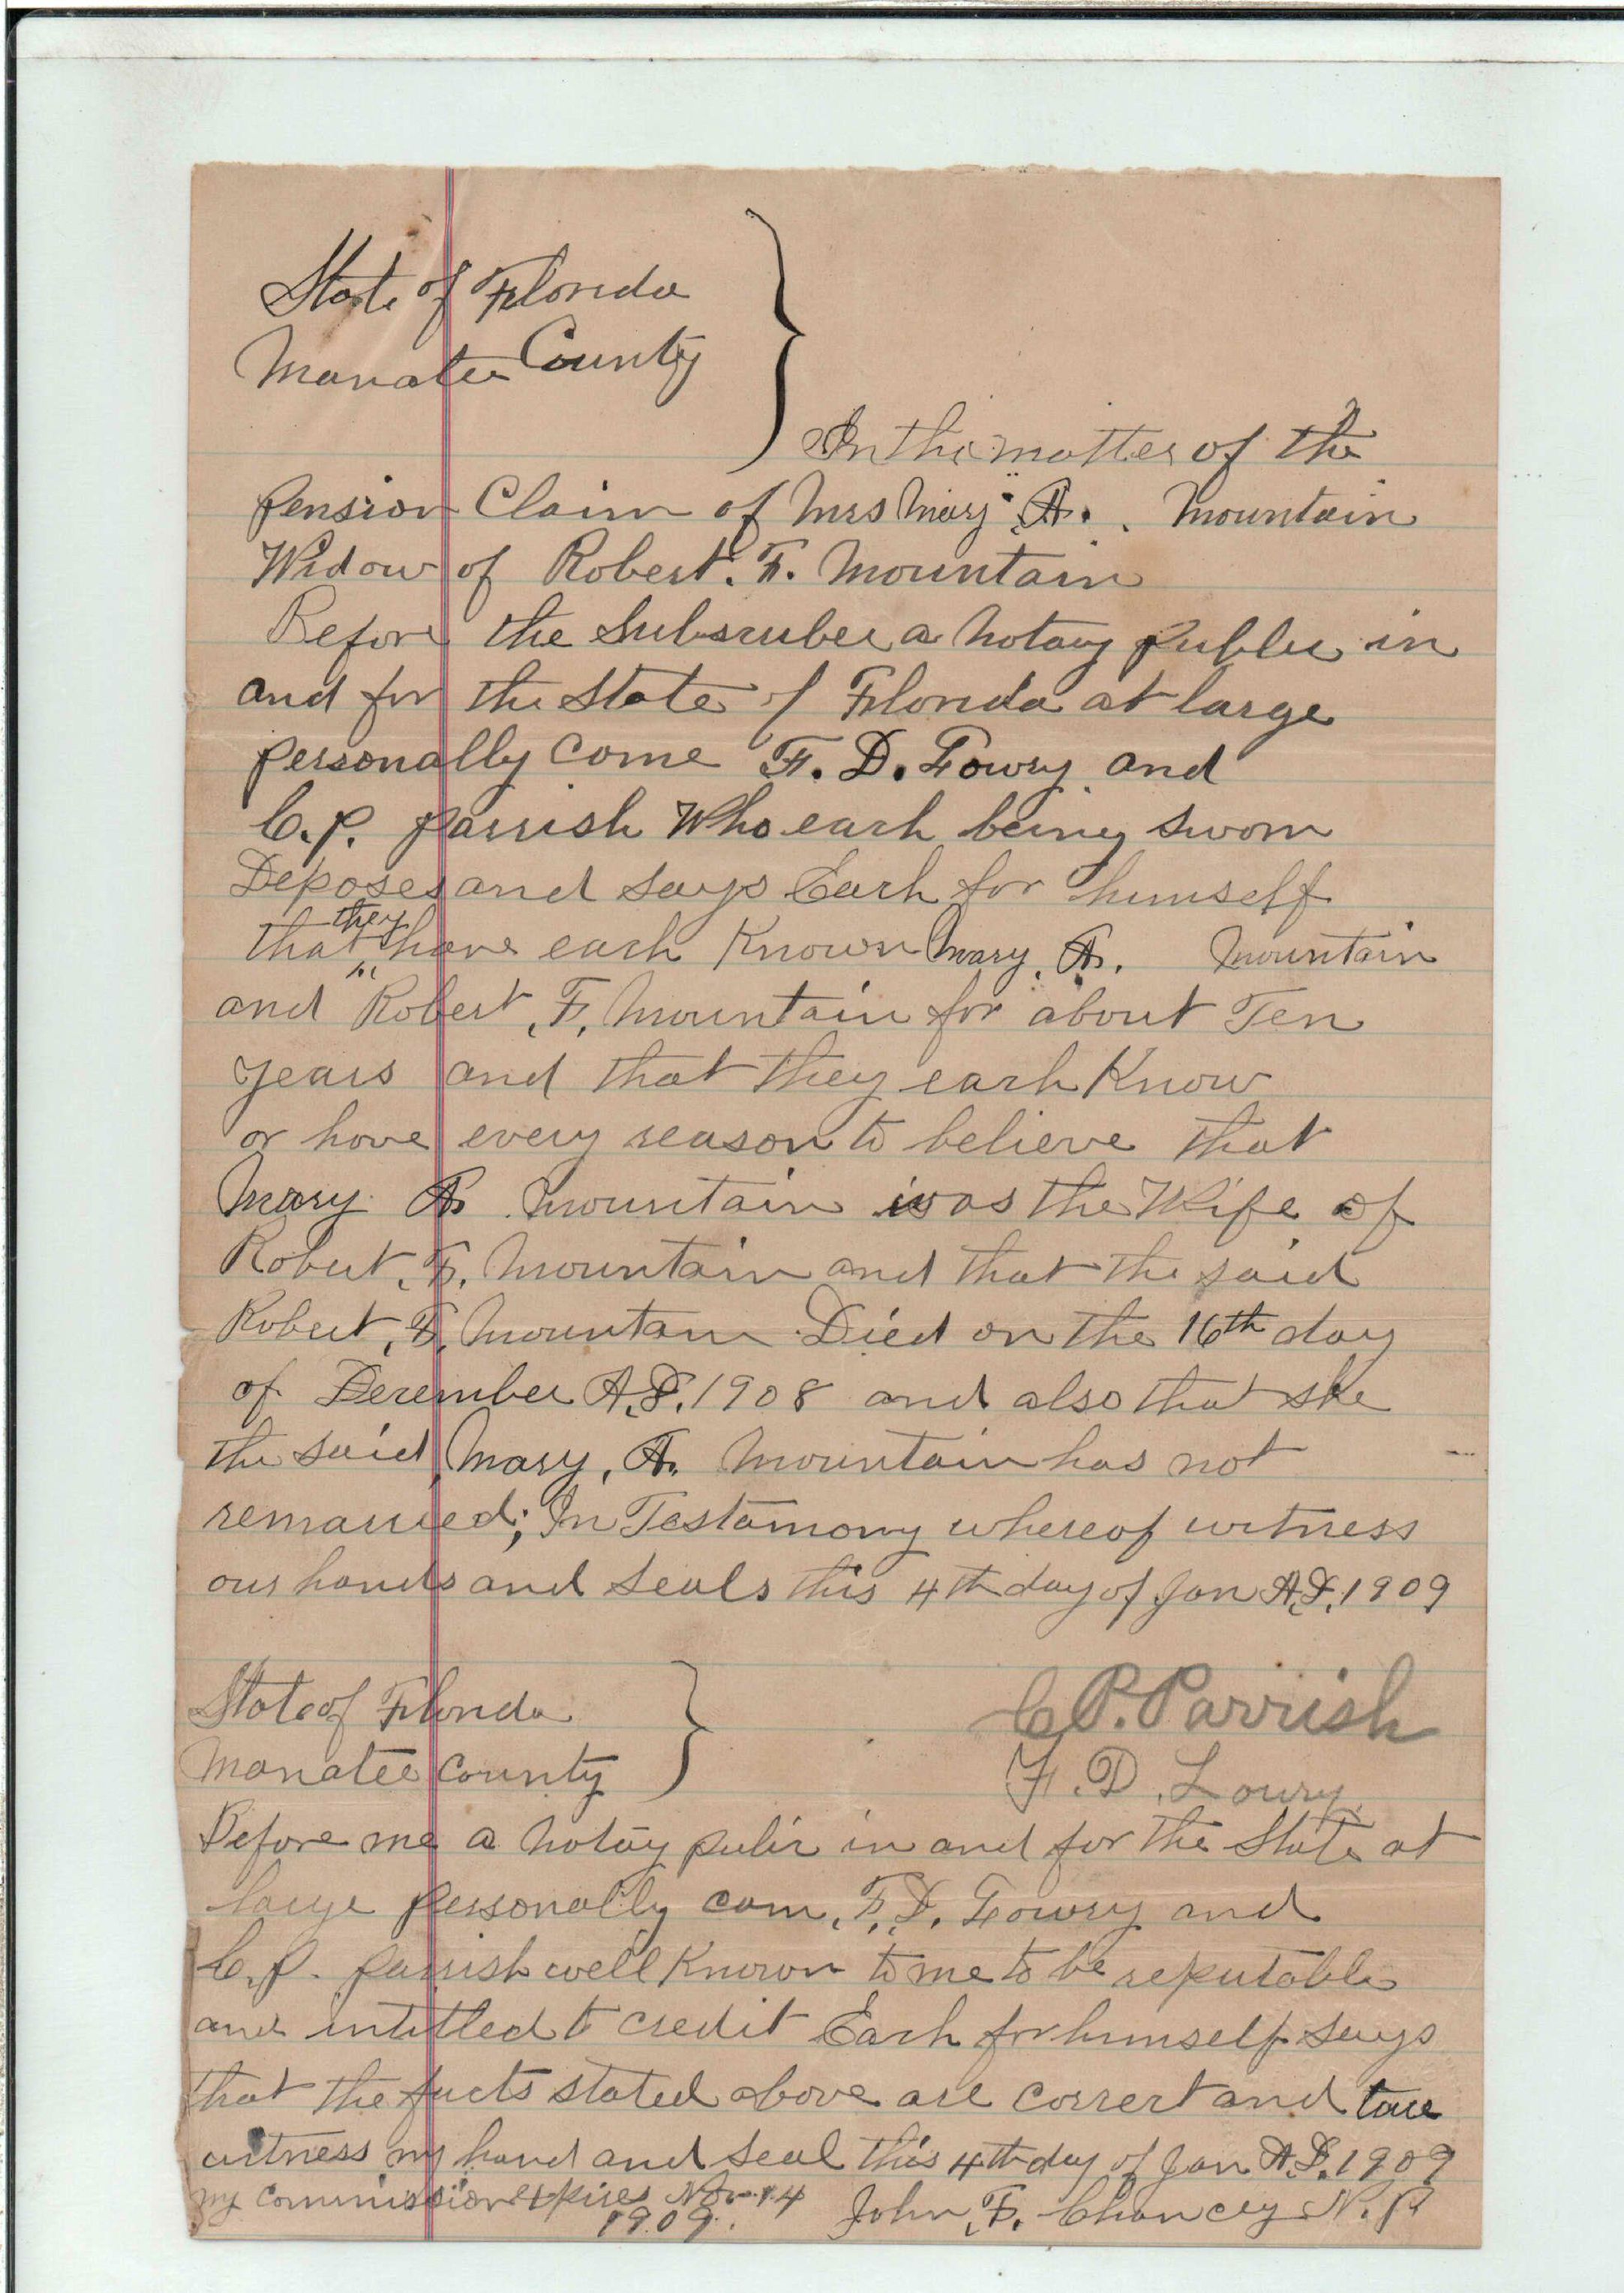 State of Florida
Manatee County
In the matter of the
Pension Claim of Mrs Mary A. Mountain
Widow of Robert. F. Mountain
Before the Subscriber a Notary Public in
and for the State of Florida at large
personally come F. D. Lowry and
C. P. Parrish Who each being sworn
Deposes and says Each for himself
that they have each Known Mary. A. Mountain
and Robert. F. Mountain for about Ten
years and that they each Know
or have every reason to believe that
Mary A Mountain was the Wife of
Robert. F. Mountain and that the said
Robert. F. Mountain Died on the 16th day
of December A.D. 1908 and also that she
the said Mary. A. Mountain has not
remarried; In Testamony whereof witness
our hands and Seals this 4th day of Jan A.D. 1909
C P. Parrish
F. D. Lowry
State of Florida
Manatee County
Before me a Notary Pulic in and for the State at
large personally com F. D. Lowry and
C. P. Parrish well Known to me to be reputable
and intitled to credit Each for himself says
that the facts stated above are correct and true
witness my hand and seal this 4th day of Jan A.D. 1909
my Commission Expires Nov 14
1909.
John. F. Chancey N. P.